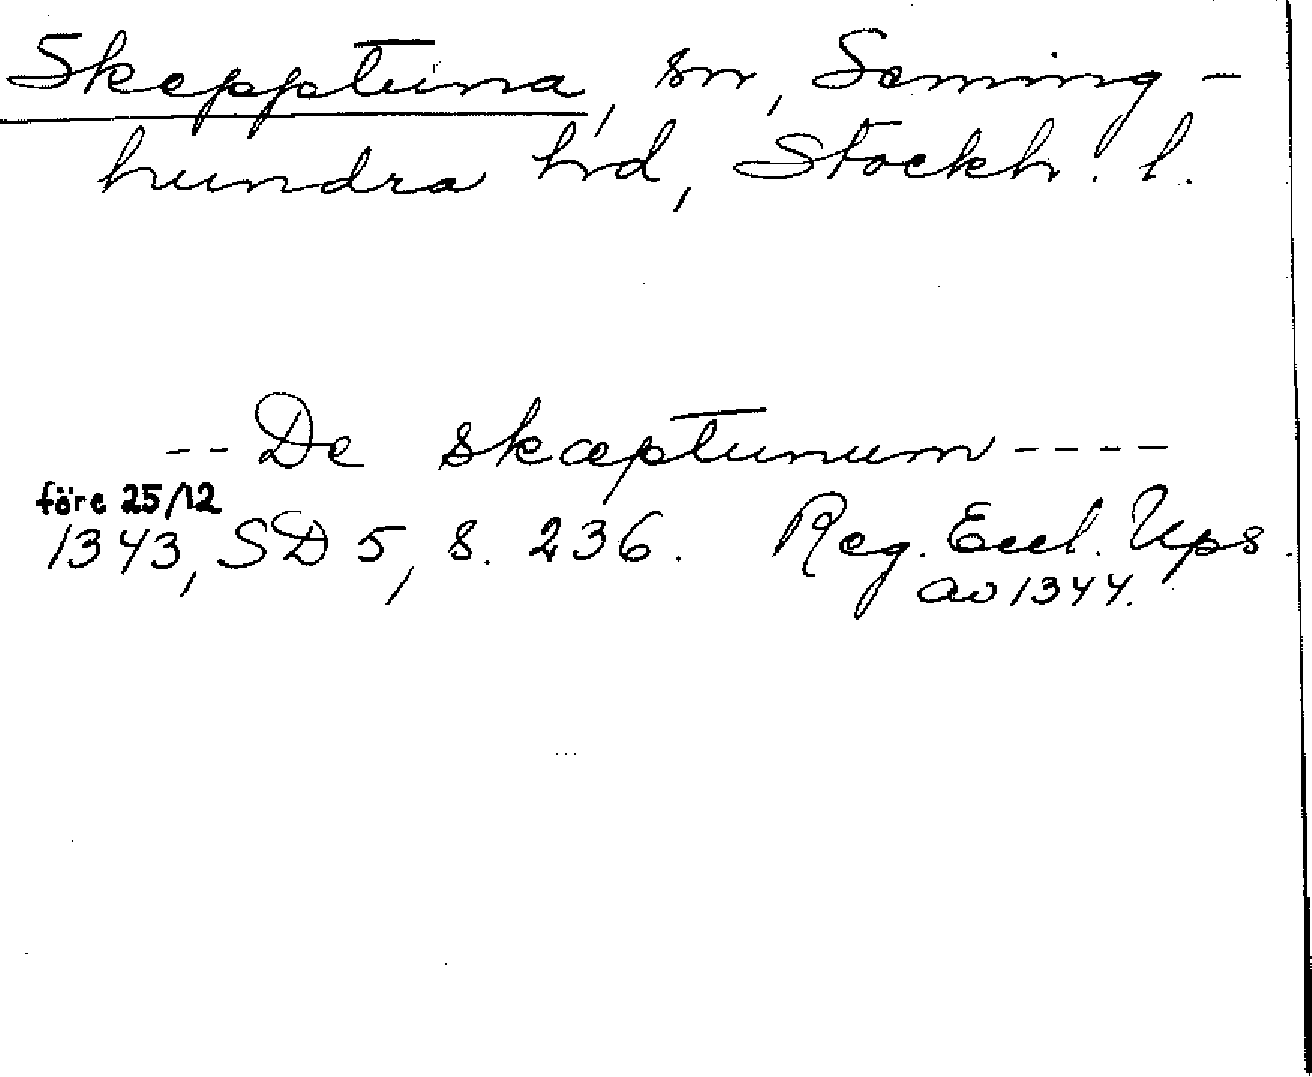 Skepptuna, sn, Seming-
hundra hd, Stockh. l.
--De skæptunum----
före 25/12
1343, SD 5, s. 236. Reg. Eccl. Ups.
av 1344.